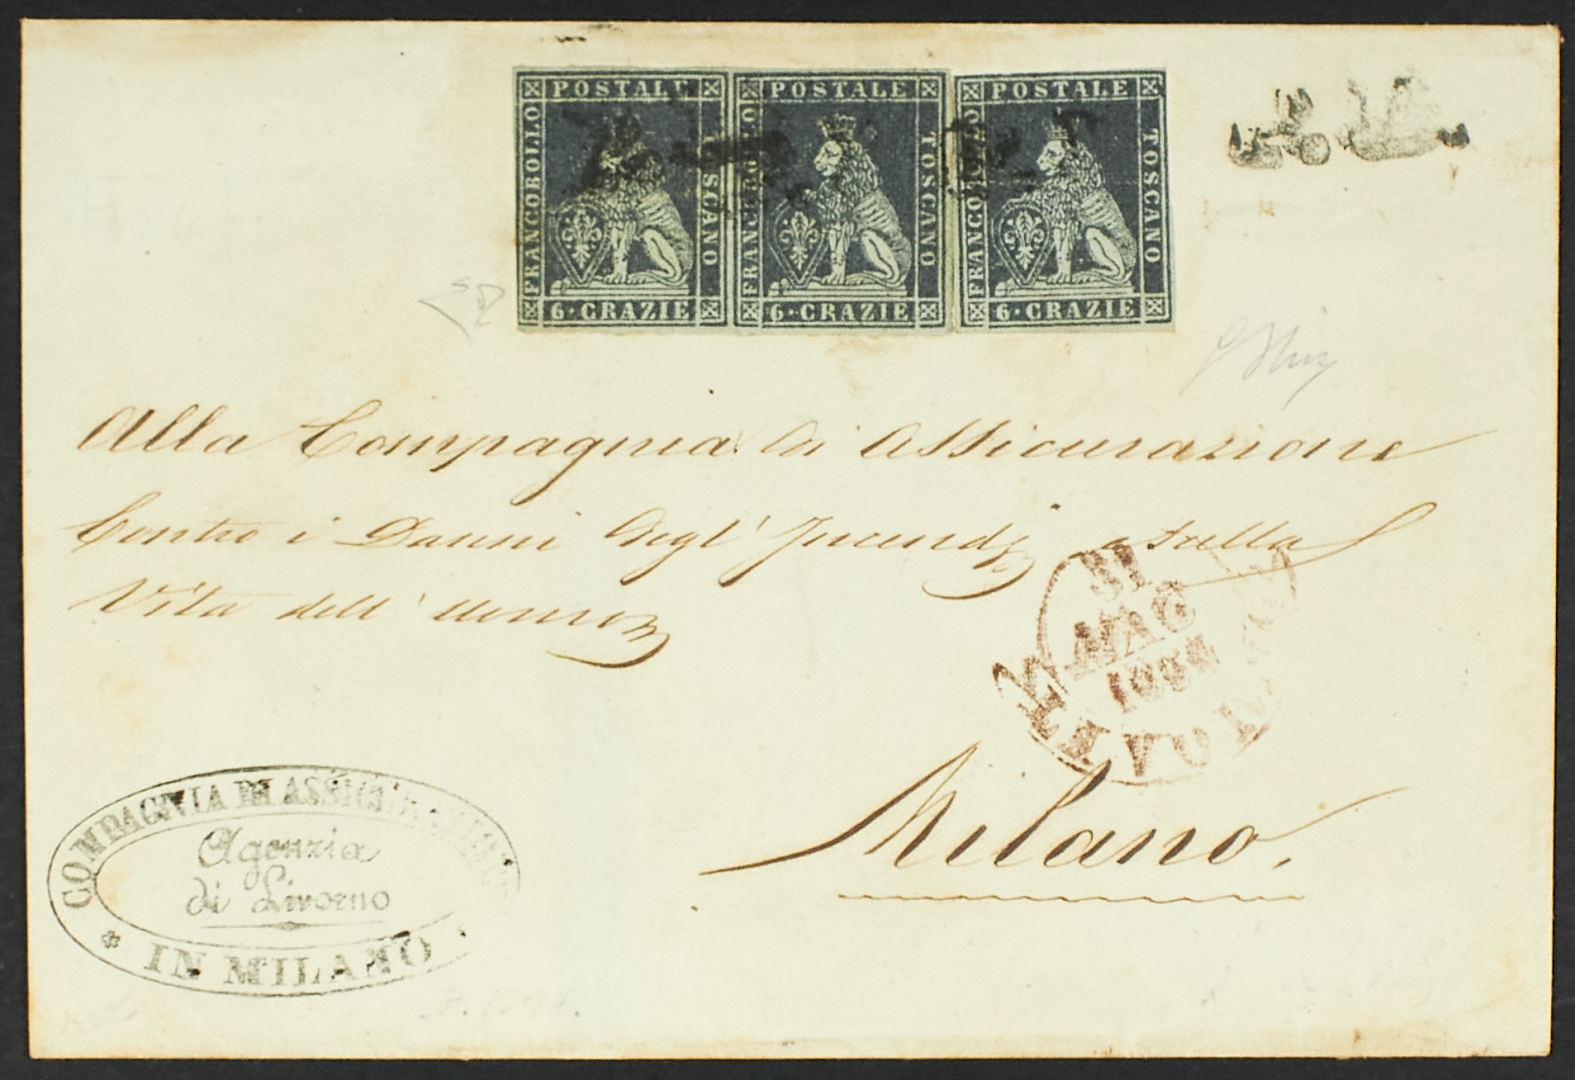 POSTALE
FRANCOBOLLO
TOSCANO
6·CRAZIE
POSTALE
FRANCOBOLLO
TOSCANO
6·CRAZIE
POSTALE
FRANCOBOLLO
TOSCANO
6·CRAZIE
P. D.
Alla Compagnia di Assicurazione
Contro i Danni degl' Incendj e sulla
Vita dell' Uomo
31
MAG
LIVORNO
Milano.
COMPAGNIA DI ASSICURAZIONE
Agenzia
di Livorno
IN MILANO